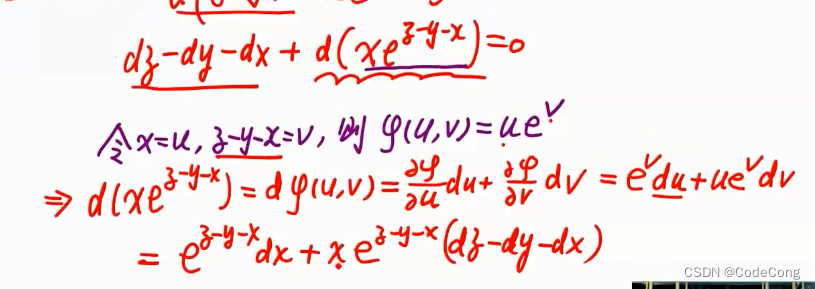 dz-dy-dx+d(xe^{z-y-x})=0
令x=u, z-y-x=v, 则 φ(u,v)=ue^v
⇒ d(xe^{z-y-x})=dφ(u,v)=∂φ/∂u du+∂φ/∂v dv=e^v du+ue^v dv
=e^{z-y-x}dx+xe^{z-y-x}(dz-dy-dx)
CSDN @CodeCong